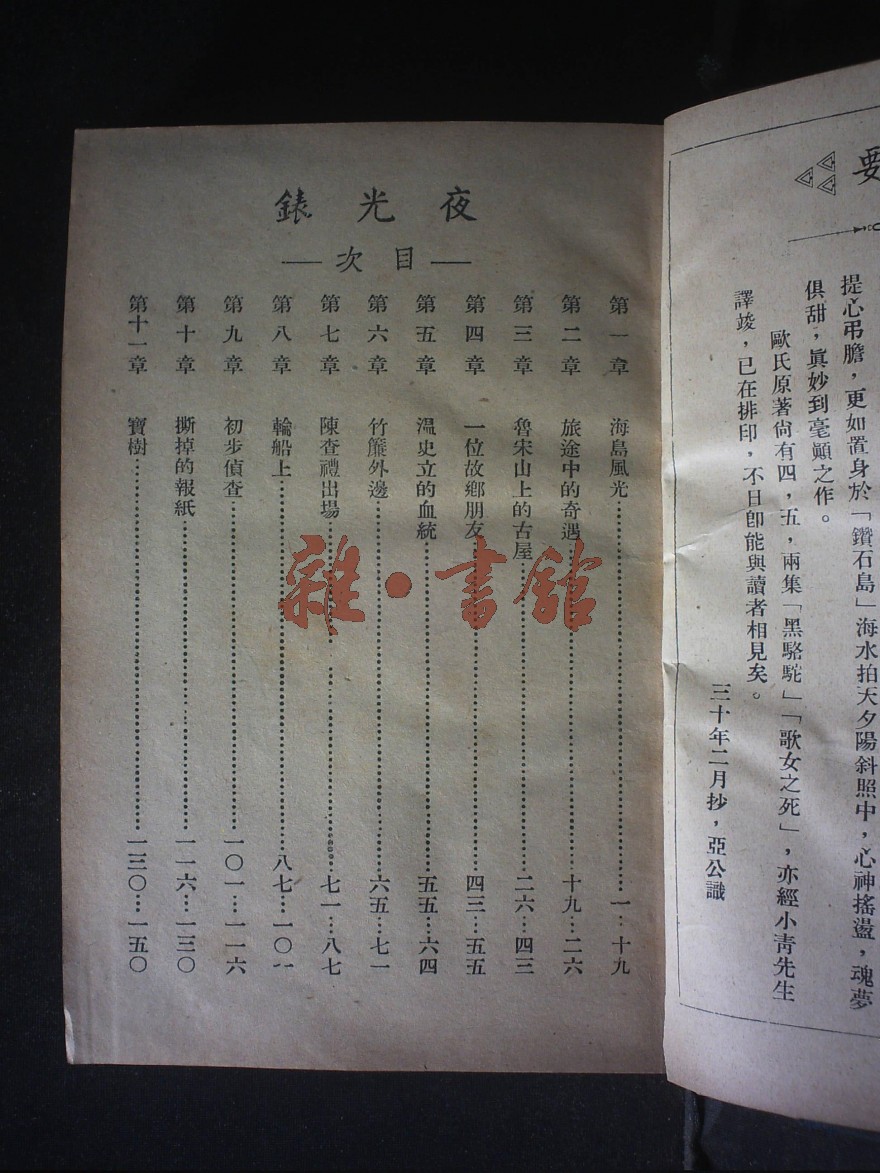 要
提心弔膽，更如置身於「鑽石島」海水拍天夕陽斜照中，心神搖盪，魂夢
俱甜，眞妙到毫顚之作。
歐氏原著尙有四，五，兩集「黑駱駝」「歌女之死」，亦經小靑先生
譯竣，已在排印，不日卽能與讀者相見矣。
三十年二月抄，亞公識
夜光錶
目次
第一章 海島風光 一…十九
第二章 旅途中的奇遇 十九…二六
第三章 魯宋山上的古屋 二六…四三
第四章 一位故鄉朋友 四三…五五
第五章 溫史立的血統 五五…六四
第六章 竹簾外邊 六五…七一
第七章 陳查禮出場 七一…八七
第八章 輪船上 八七…一〇一
第九章 初步偵查 一〇一…一一六
第十章 撕掉的報紙 一一六…一三〇
第十一章 寶樹 一三〇…一五〇
雜·書館